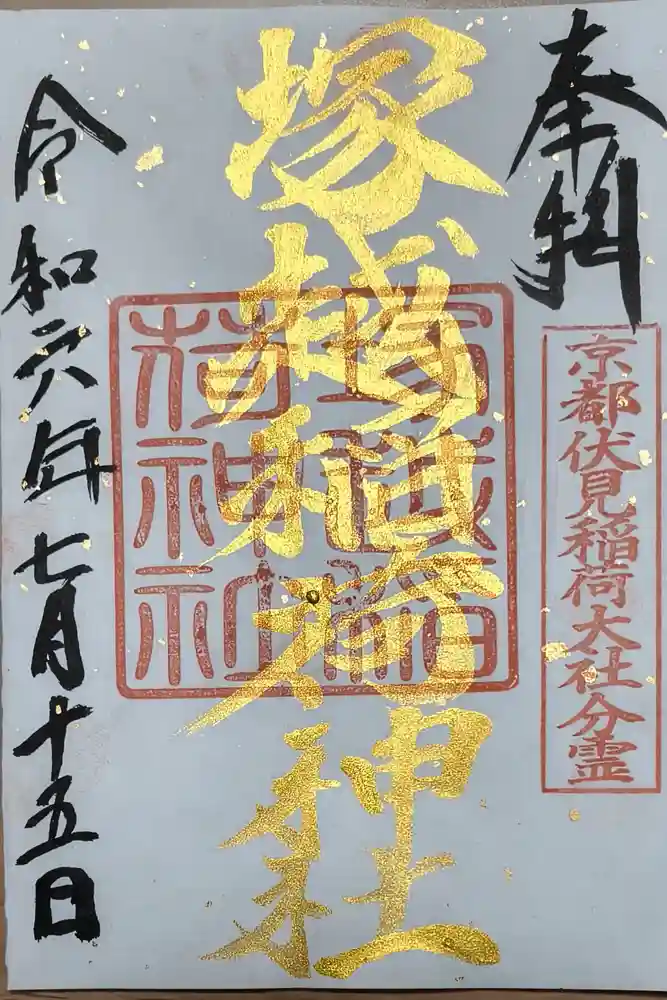 奉拝
京都伏見稲荷大社分霊
塚越稲荷神社
塚越稲
荷神社
令和六年七月十五日